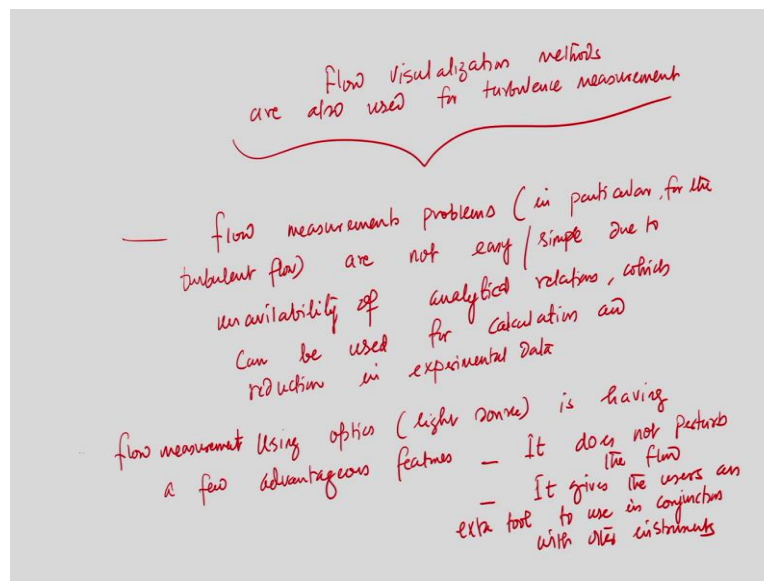 Flow visulalization methods
are also used for turbulence measurement
— flow measurements problems (in particular, for the
turbulent flow) are not easy/simple due to
unavailability of analytical relations, which
can be used for calculation and
reduction in experimental data
flow measurement using optics (light source) is having
a few advantageous features — It does not perturb
the flow
— It gives the users an
extra tool to use in conjunction
with other instruments